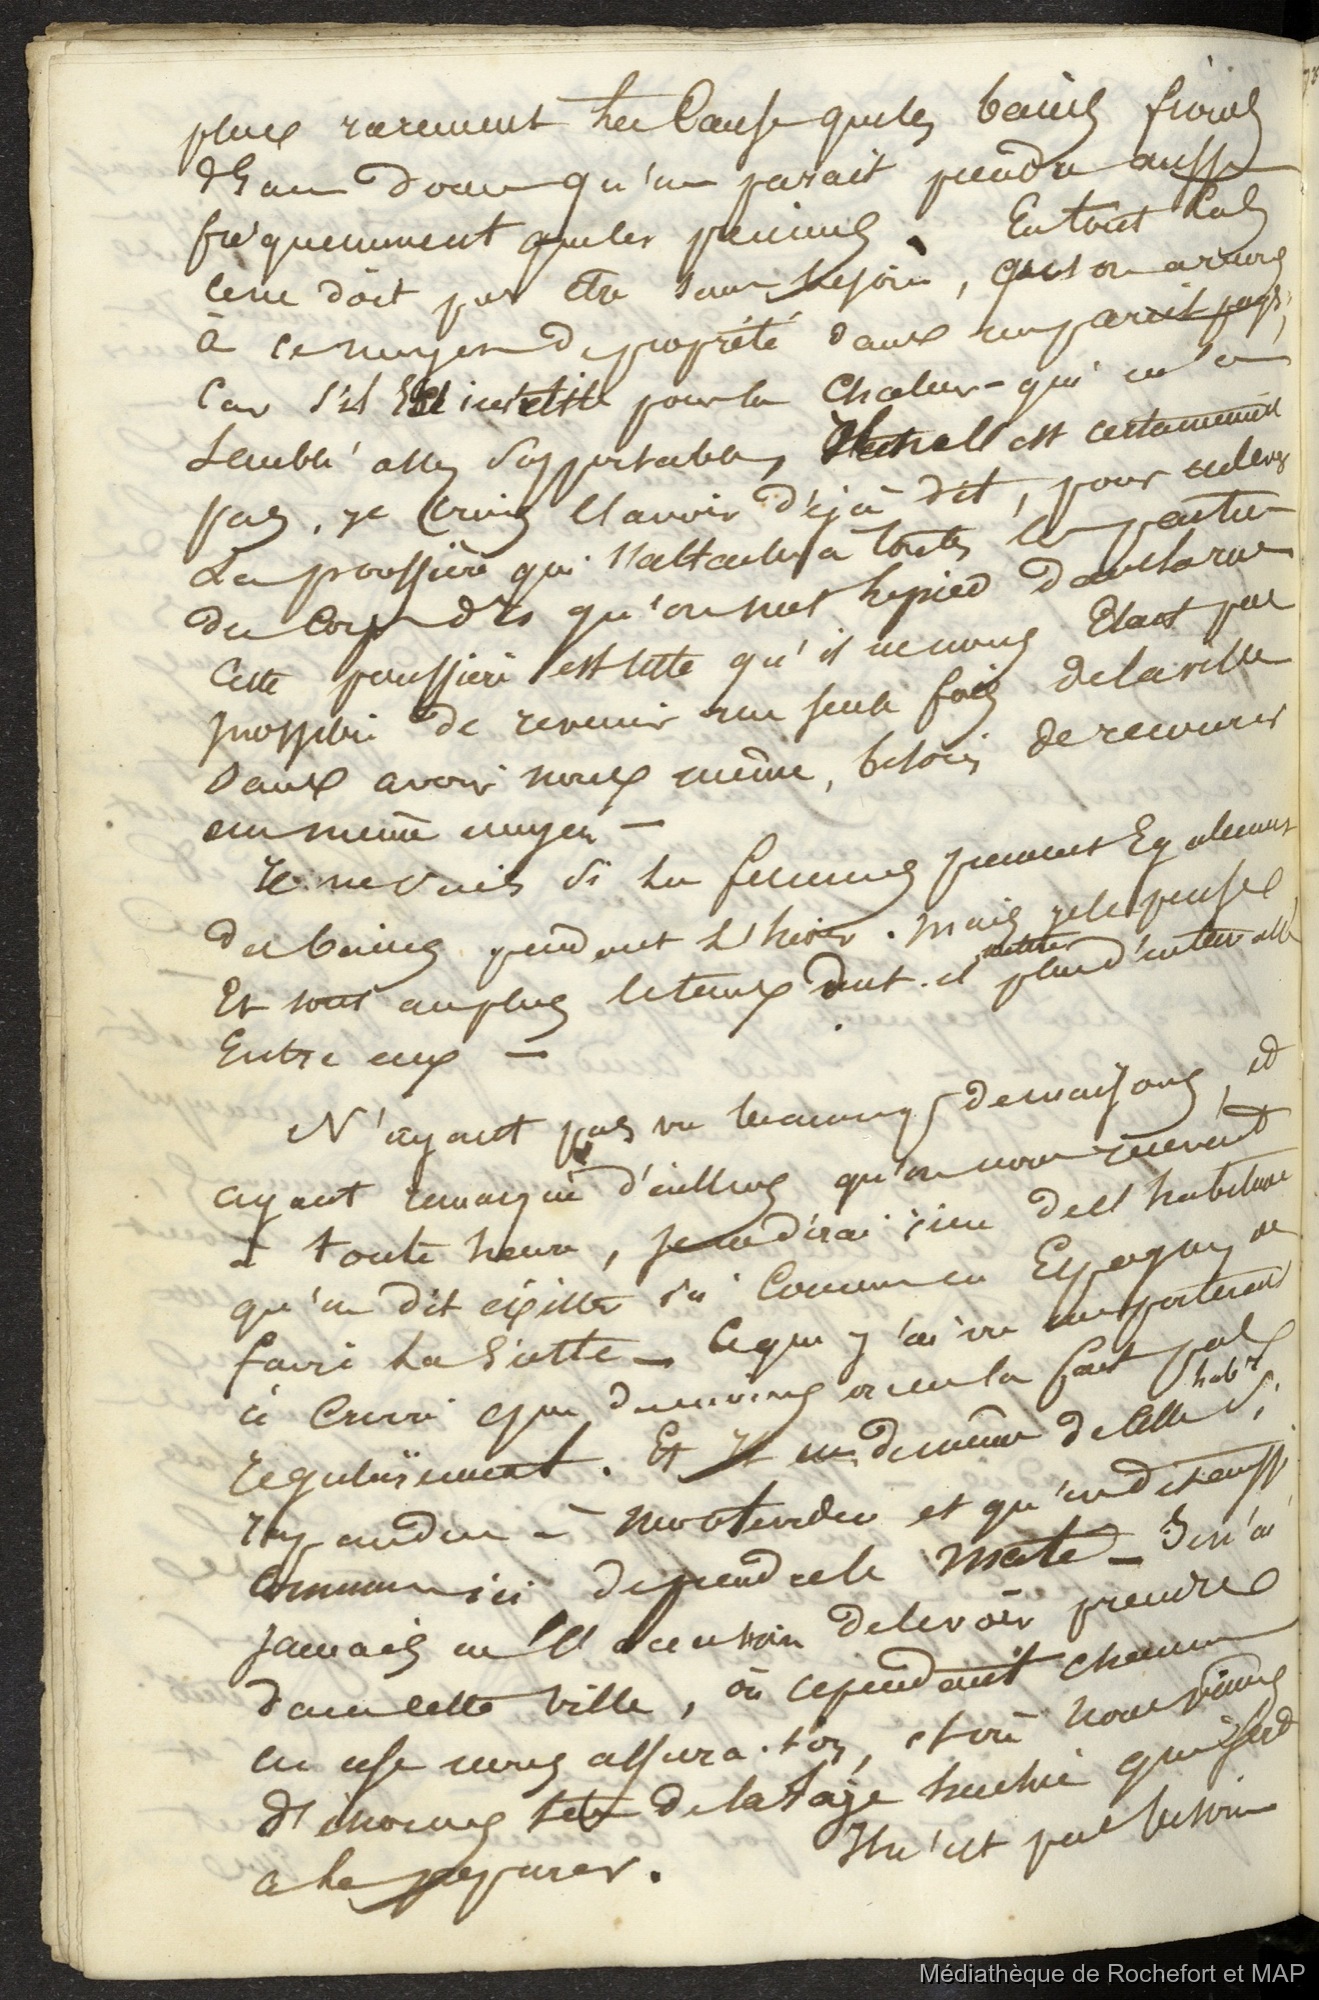 plus rarement les cause que les bains froids
d'Eau douce qu'on parait prendre aussi
fréquemment que les premiers. En tout Cas
ce ne doit pas être sans besoin, que l'on a recours
à ce moyen de propreté dans un pareil pays,
Car s'il Est inutile pour la Chaleur - qui m'a
Semblé assez Supportable, il est certainement
pas, je Crois l'avoir déjà dit, pour enlever
La poussière qui s'attache à toutes les parties
du Corps dès qu'on met le pied dans la rue
Cette poussière est telle qu'il ne nous Etait pas
possible de revenir une seule fois de la ville
Sans avoir nous même, besoin de recourir
au même moyen —
Je ne sais si les femmes prennent Egalement
des bains pendant L'hiver. Mais je le pense
Et tout au plus le temps dut-il mettre plus d'intervalle
Entre eux —
N'ayant pas vu beaucoup de maisons, et
ayant remarqué d'ailleurs qu'on nous recevait
à toute heure, je ne dirai rien de l'habitude
qu'on dit exister ici Comme en Espagne de
faire la Siette — Ce que j'ai vu me porterait
à Croire que du moins on ne la fait pas
régulièrement. Et Il en de même de Celle habde si
répandue à Montevideo et qu'on dit aussi
Commune ici de prendre le Maté — Je n'ai
jamais eu l'occasion de le voir prendre
dans cette ville, où cependant chacun
en use nous assura-t-on, et où nous vimes
d'énormes tas de la tage sechée qui sert
a le preparer. Il n'est pas besoin
Médiathèque de Rochefort et MAP